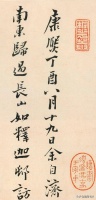 康熙丁酉八月十九日余自濟
南東歸過長山如釋迦邨訪